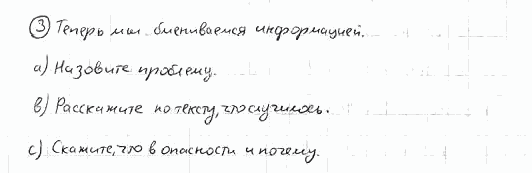 ③ Теперь мы обмениваемся информацией.
а) Назовите проблему.
в) Расскажите по тексту, что случилось.
с) Скажите, что в опасности и почему.